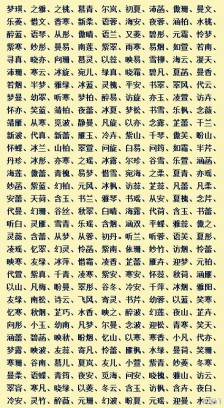 梦琪、之雅、之桃、慕青、尔岚、初夏、沛菡、傲珊、曼文、
乐菱、惜文、香寒、新柔、语蓉、海安、夜蓉、涵柏、水桃、
醉蓝、语琴、从彤、傲晴、语兰、又菱、碧彤、元霜、怜梦、
紫寒、妙彤、曼易、南莲、紫翠、雨寒、易烟、如萱、若南、
寻真、晓亦、向珊、慕灵、以蕊、映易、雪柳、海云、凝天、
沛珊、寒云、冰旋、宛儿、绿真、晓霜、碧凡、夏菡、曼香、
若烟、半梦、雅绿、冰蓝、灵槐、平安、书翠、翠风、代云、
梦曼、幼翠、听寒、梦柏、醉易、访旋、亦玉、凌萱、访卉、
怀亦、笑蓝、靖柏、夜蕾、冰夏、梦松、书雪、乐枫、念薇、
靖雁、从寒、觅波、静曼、凡旋、以亦、念露、芷蕾、千兰、
新波、代真、新蕾、雁玉、冷卉、紫山、千琴、傲芙、盼山、
怀蝶、冰兰、山柏、翠萱、问旋、白易、问筠、如霜、半芹、
丹珍、冰彤、亦寒、之瑶、冰露、尔珍、谷雪、乐萱、涵菡、
海莲、傲蕾、青槐、易梦、惜雪、宛海、之柔、夏青、亦瑶、
妙菡、紫蓝、幻柏、元风、冰枫、访蕊、芷蕊、凡蕾、凡柔、
安蕾、天荷、含玉、书兰、雅琴、书瑶、从安、夏槐、念芹、
代曼、幻珊、谷丝、秋翠、白晴、海露、代荷、含玉、书蕾、
听白、灵雁、雪青、乐瑶、含烟、涵双、平蝶、雅蕊、傲之、
灵薇、含蕾、从梦、从蓉、初丹、听兰、听蓉、语芙、夏彤、
凌瑶、忆翠、幻灵、怜菡、紫南、依珊、妙竹、访烟、怜蕾、
映寒、友绿、冰萍、惜霜、凌香、芷蕾、雁卉、迎梦、元柏、
代萱、紫真、千青、凌寒、紫安、寒安、怀蕊、秋荷、涵雁、
以山、凡梅、盼曼、翠彤、谷冬、冷安、千萍、冰烟、雅阳、
友绿、南松、诗云、飞风、寄灵、书芹、幼蓉、以蓝、笑寒、
忆寒、秋烟、芷巧、水香、映之、醉波、幻莲、夜山、芷卉、
向彤、小玉、幼南、凡梦、尔曼、念波、迎松、青寒、笑天、
涵蕾、碧菡、映秋、盼烟、忆山、以寒、寒香、小凡、代亦、
梦露、映波、友蕊、寄凡、怜蕾、雁枫、水绿、曼荷、笑珊、
寒珊、谷南、慕儿、夏岚、友儿、小萱、紫青、妙菱、冬寒、
曼柔、语蝶、青筠、夜安、觅海、问安、晓槐、雅山、访云、
翠容、寒凡、晓绿、以菱、冬云、含玉、访枫、含卉、夜白、
冷安、灵竹、醉薇、元珊、幻波、盼夏、元瑶、迎曼、水云、